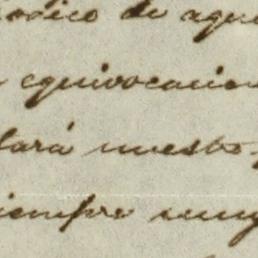 ódico de aque
equivocacion
tará nuestro
iempre muy